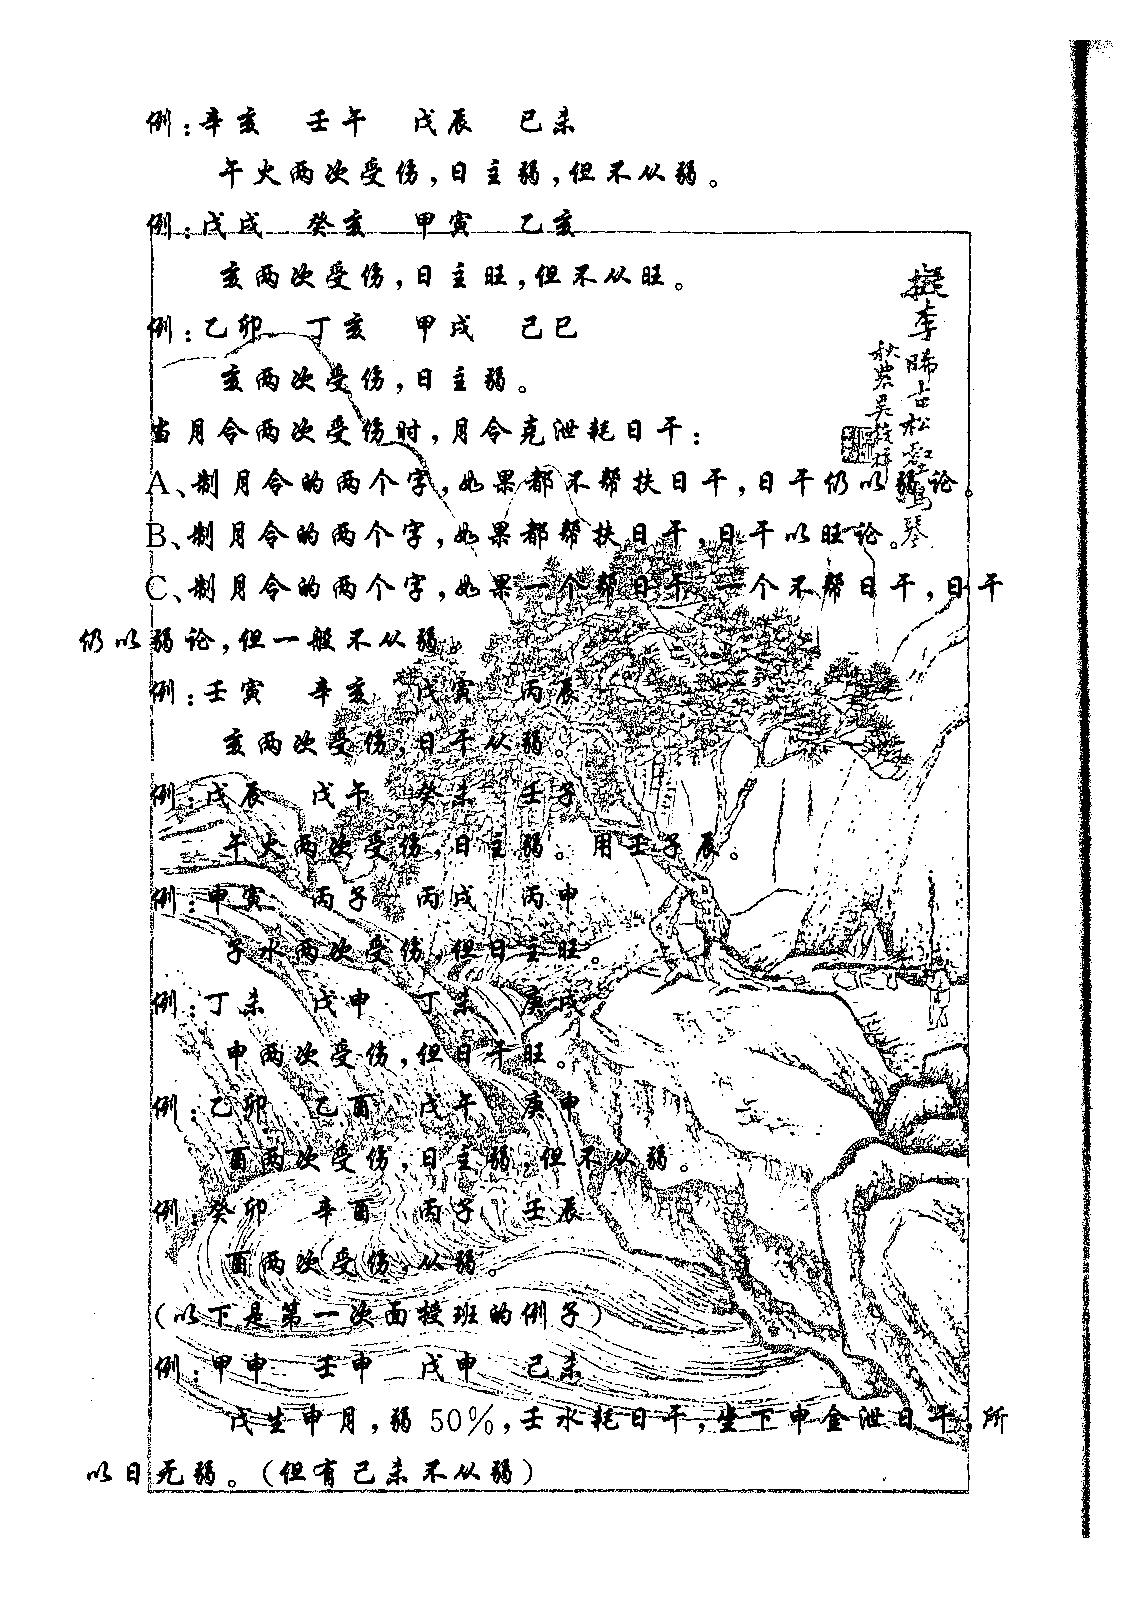 例：辛亥　壬午　戊辰　己未
午火两次受伤，日主弱，但不从弱。
例：戊戌　癸亥　甲寅　乙亥
亥两次受伤，日主旺，但不从旺。
例：乙卯　丁亥　甲戌　己巳
亥两次受伤，日主弱。
当月令两次受伤时，月令克泄耗日干：
A、制月令的两个字，如果都不帮扶日干，日干仍以弱论。
B、制月令的两个字，如果都帮扶日干，日干以旺论。
C、制月令的两个字，如果一个帮日干、一个不帮日干，日干
仍以弱论，但一般不从弱。
例：壬寅　辛亥　戊寅　丙辰
亥两次受伤，日干从弱。
例：戊辰　戊午　癸未　壬子
午火两次受伤，日主弱。用壬子辰。
例：申寅　丙子　丙戌　丙申
子水两次受伤，但日主旺。
例：丁未　戊申　丁未　庚戌
申两次受伤，但日干旺。
例：乙卯　乙酉　戊午　庚申
酉两次受伤，日主弱，但不从弱。
例：癸卯　辛酉　丙子　壬辰
酉两次受伤，从弱。
（以下是第一次面授班的例子）
例：甲申　壬申　戊申　己未
戊生申月，弱50%，壬水耗日干，坐下申金泄日干，所
以日元弱。（但有己未不从弱）
拟李晞古松壑鸣琴
秋农吴